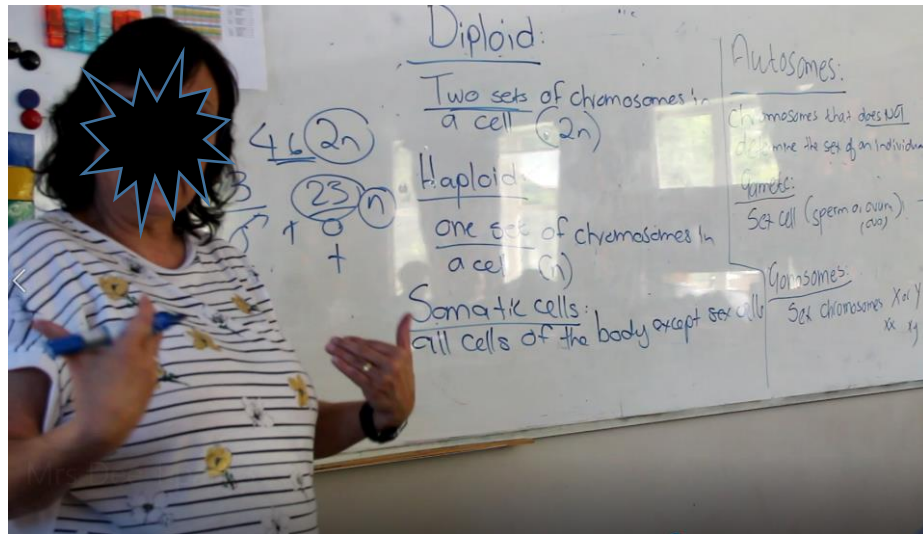 Diploid:
Two sets of chromosomes in
a cell (2n)
46 2n
3 23 n
+
+
Haploid
one set of chromosomes in
a cell (n)
Somatic cells:
all cells of the body except sex cells
Autosomes:
Chromosomes that does NOT
determine the sex of an individual
Gamete:
Sex cell (sperm or ovum)
(ova)
Gonosomes:
Sex chromosomes X or Y
xx xy
Mrs